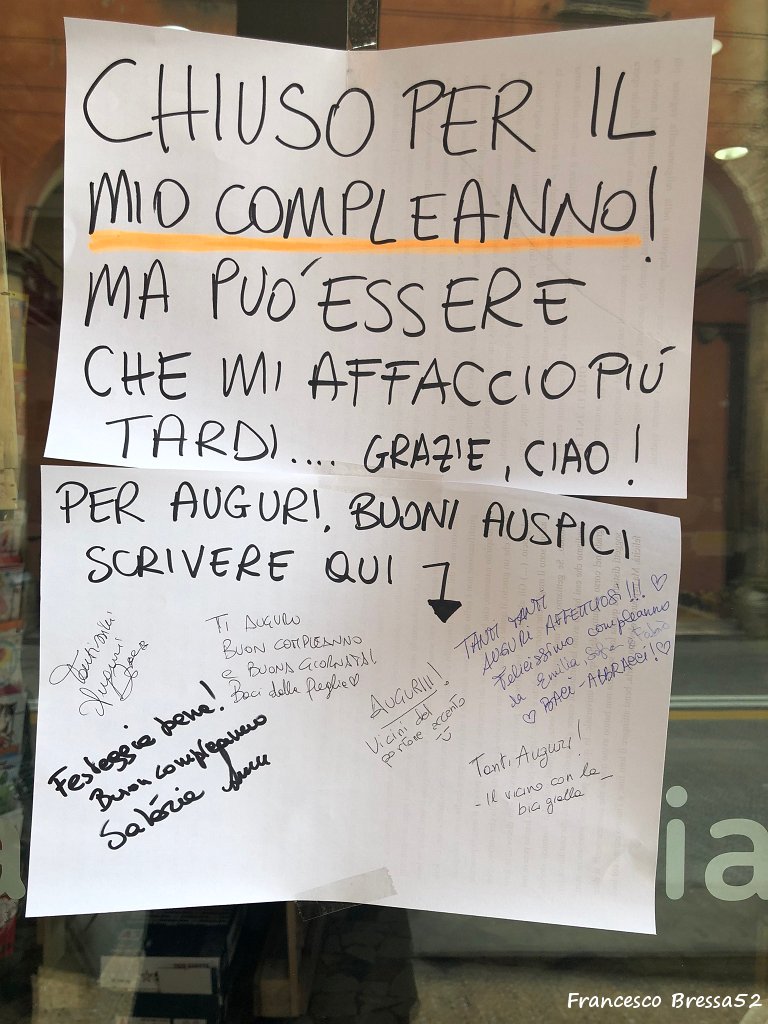 CHIUSO PER IL
MIO COMPLEANNO!
MA PUÓ ESSERE
CHE MI AFFACCIO PIÚ
TARDI.... GRAZIE, CIAO!
PER AUGURI, BUONI AUSPICI
SCRIVERE QUI
Tantissimi
Auguri
TI AUGURO
BUON COMPLEANNO
E BUONA GIORNATA!
Baci dalla Puglia ♡
Festeggia bene!
Buon compleanno
AUGURIII!
Vicini del
portone accanto
TANTI TANTI
AUGURI AFFETTUOSI!!! ♡
Felicissimo compleanno
da Emilia, Sofia e Fabio
♡ BACI ABBRACCI! ♡
Tanti Auguri!
- Il vicino con la
bici gialla -
a
ia
Francesco Bressa52